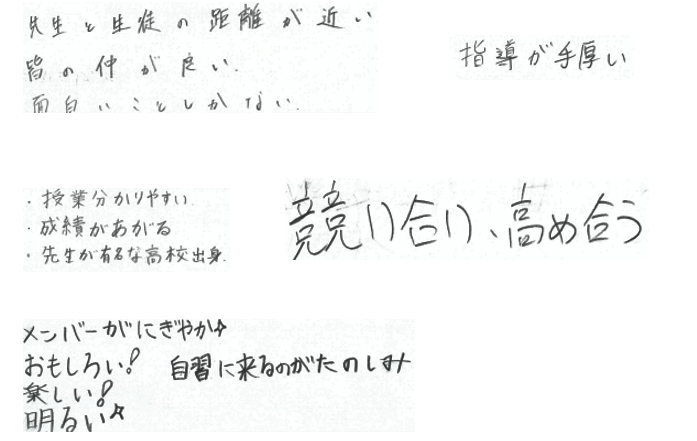 先生と生徒の距離が近い
皆の仲が良い.
面白いことしかない.
指導が手厚い
・授業分かりやすい
・成績があがる
・先生が有名な高校出身.
競い合い、高め合う
メンバーがにぎやか☆
おもしろい!
自習に来るのがたのしみ
楽しい!
明るい☆